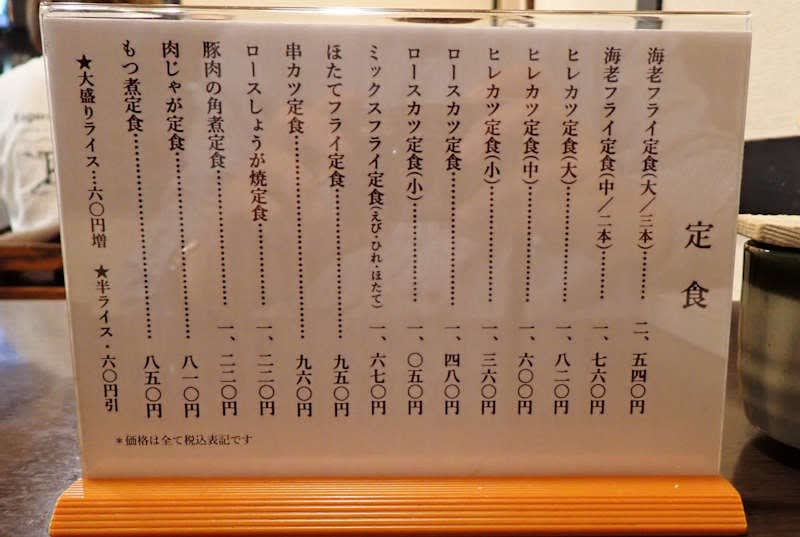 定食
海老フライ定食(大／三本)………二、五四〇円
海老フライ定食(中／二本)………一、七六〇円
ヒレカツ定食(大)………一、八二〇円
ヒレカツ定食(中)………一、六〇〇円
ヒレカツ定食(小)………一、三六〇円
ロースカツ定食………一、四八〇円
ロースカツ定食(小)………一、〇五〇円
ミックスフライ定食(えび・ひれ・ほたて)一、六七〇円
ほたてフライ定食………九五〇円
串カツ定食………九六〇円
ロースしょうが焼定食………一、二二〇円
豚肉の角煮定食………一、二二〇円
肉じゃが定食………八一〇円
もつ煮定食………八五〇円
★大盛りライス…六〇円増 ★半ライス・六〇円引
＊価格は全て税込表記です